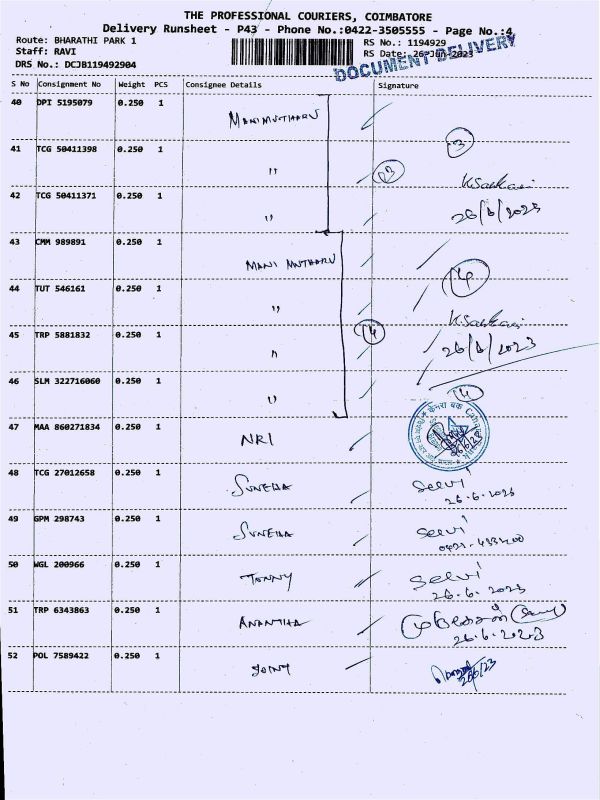 THE PROFESSIONAL COURIERS, COIMBATORE
Delivery Runsheet - P43 - Phone No.:0422-3505555 - Page No.:4
Route: BHARATHI PARK 1
RS No.: 1194929
Staff: RAVI
RS Date: 26-Jun-2023
DOCUMENT DELIVERY
DRS No.: DCJB119492904
S No Consignment No Weight PCS Consignee Details Signature
40 DPI 5195079 0.250 1 MANIMUTHARU
3
41 TCG 50411398 0.250 1 " 3
42 TCG 50411371 0.250 1 "
26/6/2023
43 CMM 989891 0.250 1 MANI MUTHARU
4
44 TUT 546161 0.250 1 "
45 TRP 5881832 0.250 1 " 4
26/6/2023
46 SLM 322716060 0.250 1 " 4
47 MAA 860271834 0.250 1 NRI
48 TCG 27012658 0.250 1 SUNEHA Selvi
26.6.2023
49 GPM 298743 0.250 1 SUNEHA Selvi
50 WGL 200966 0.250 1 TONNY Selvi
26.6.2023
51 TRP 6343863 0.250 1 ANANTHA
26.6.2023
52 POL 7589422 0.250 1